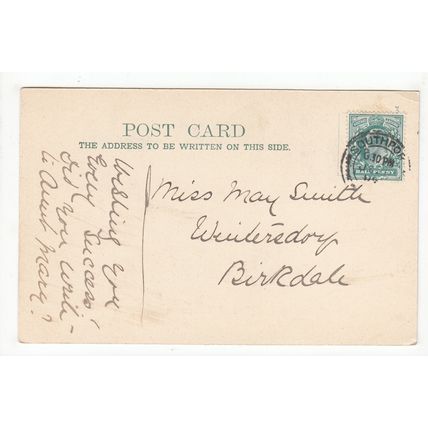 POST CARD
THE ADDRESS TO BE WRITTEN ON THIS SIDE.
Wishing you
Every Success!
Did you write
to Aunt Mary?
Miss May Smith
Wintersdorf
Birkdale
SOUTHPORT
6.30 PM
HALF PENNY